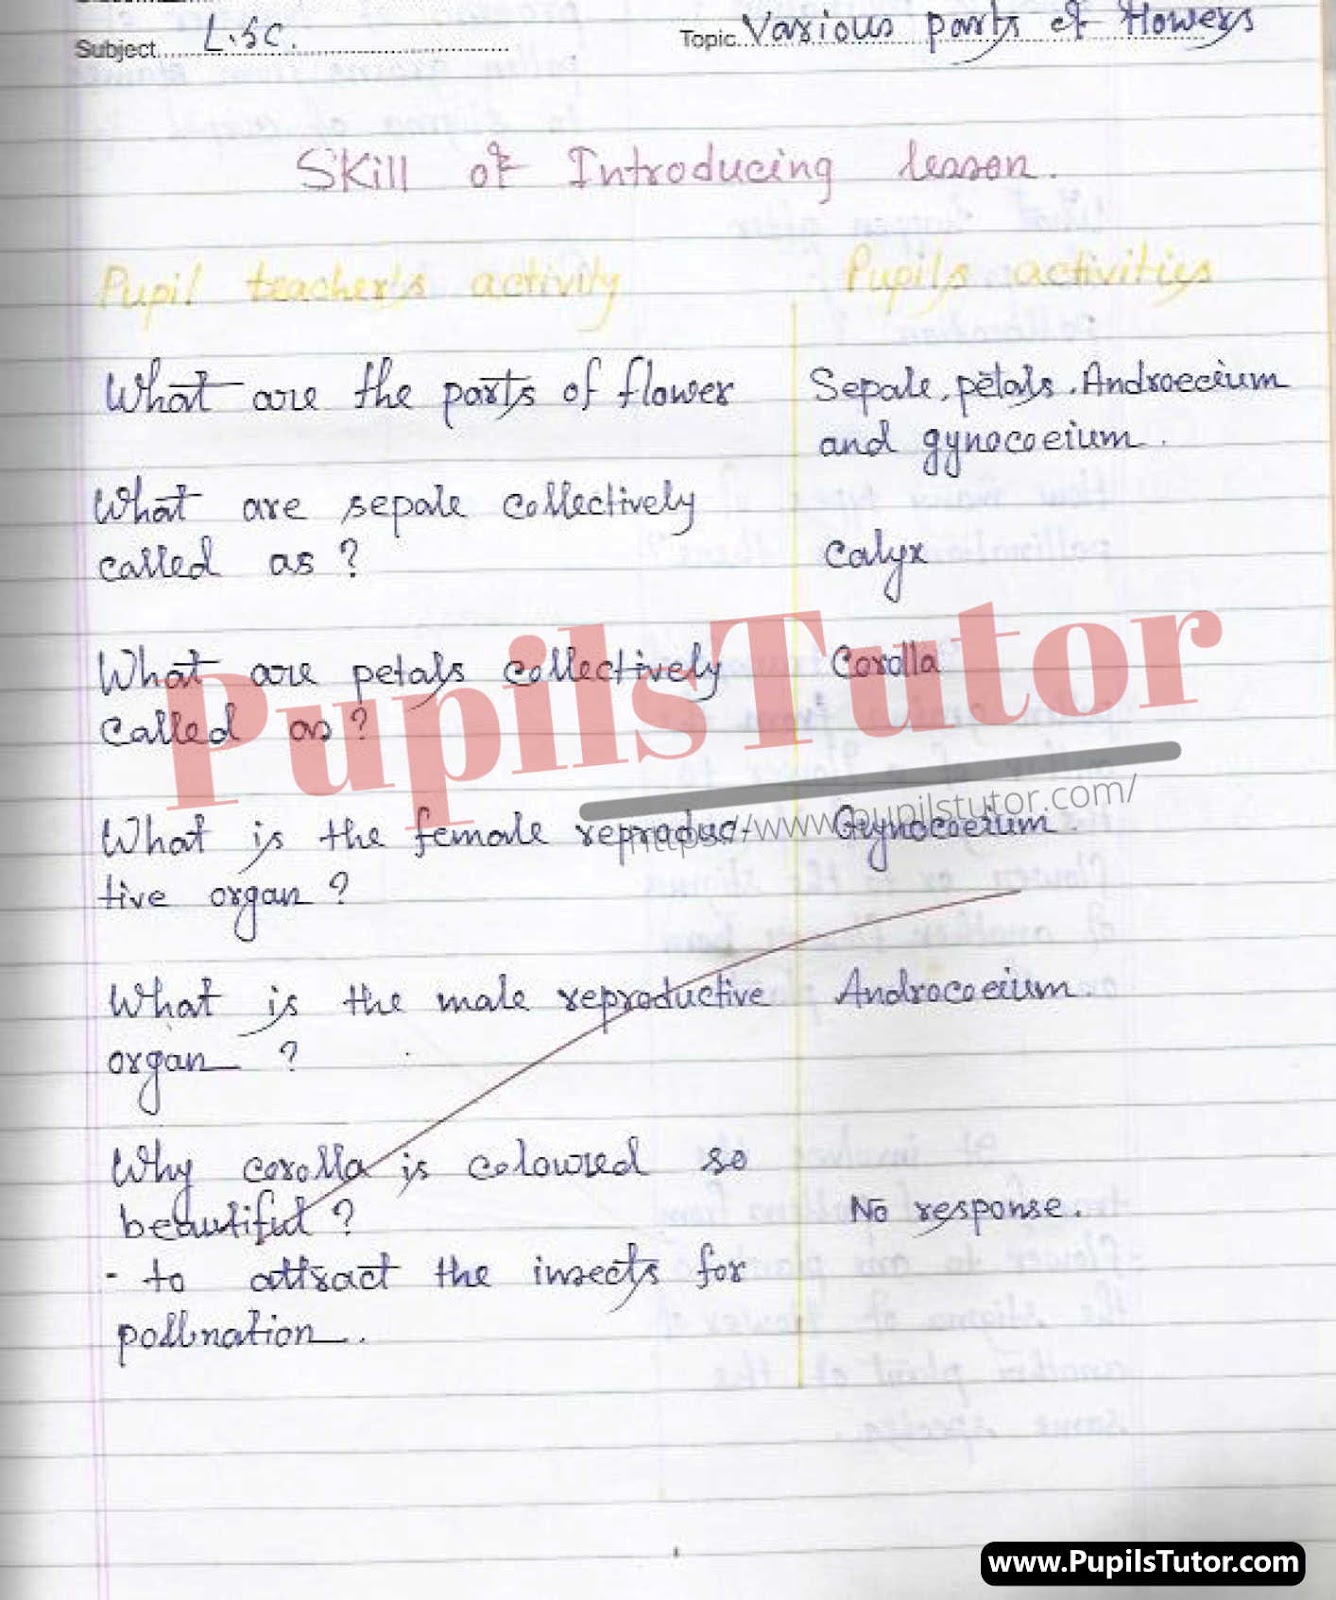 Subject L.Sc. Topic Various parts of flowers
Skill of Introducing lesson.
Pupil teacher's activity Pupils activities
What are the parts of flower Sepale, petals. Androecium
and gynocoeium.
What are sepale collectively
called as? Calyx
What are petals collectively Corolla
called as?
What is the female reproduc- Gynocoeium.
tive organ?
What is the male reproductive Androcoeium.
organ ?
Why corolla is coloured so
beautiful? No response.
- to attract the insects for
pollination.
PupilsTutor
https://www.pupilstutor.com/
www.PupilsTutor.com